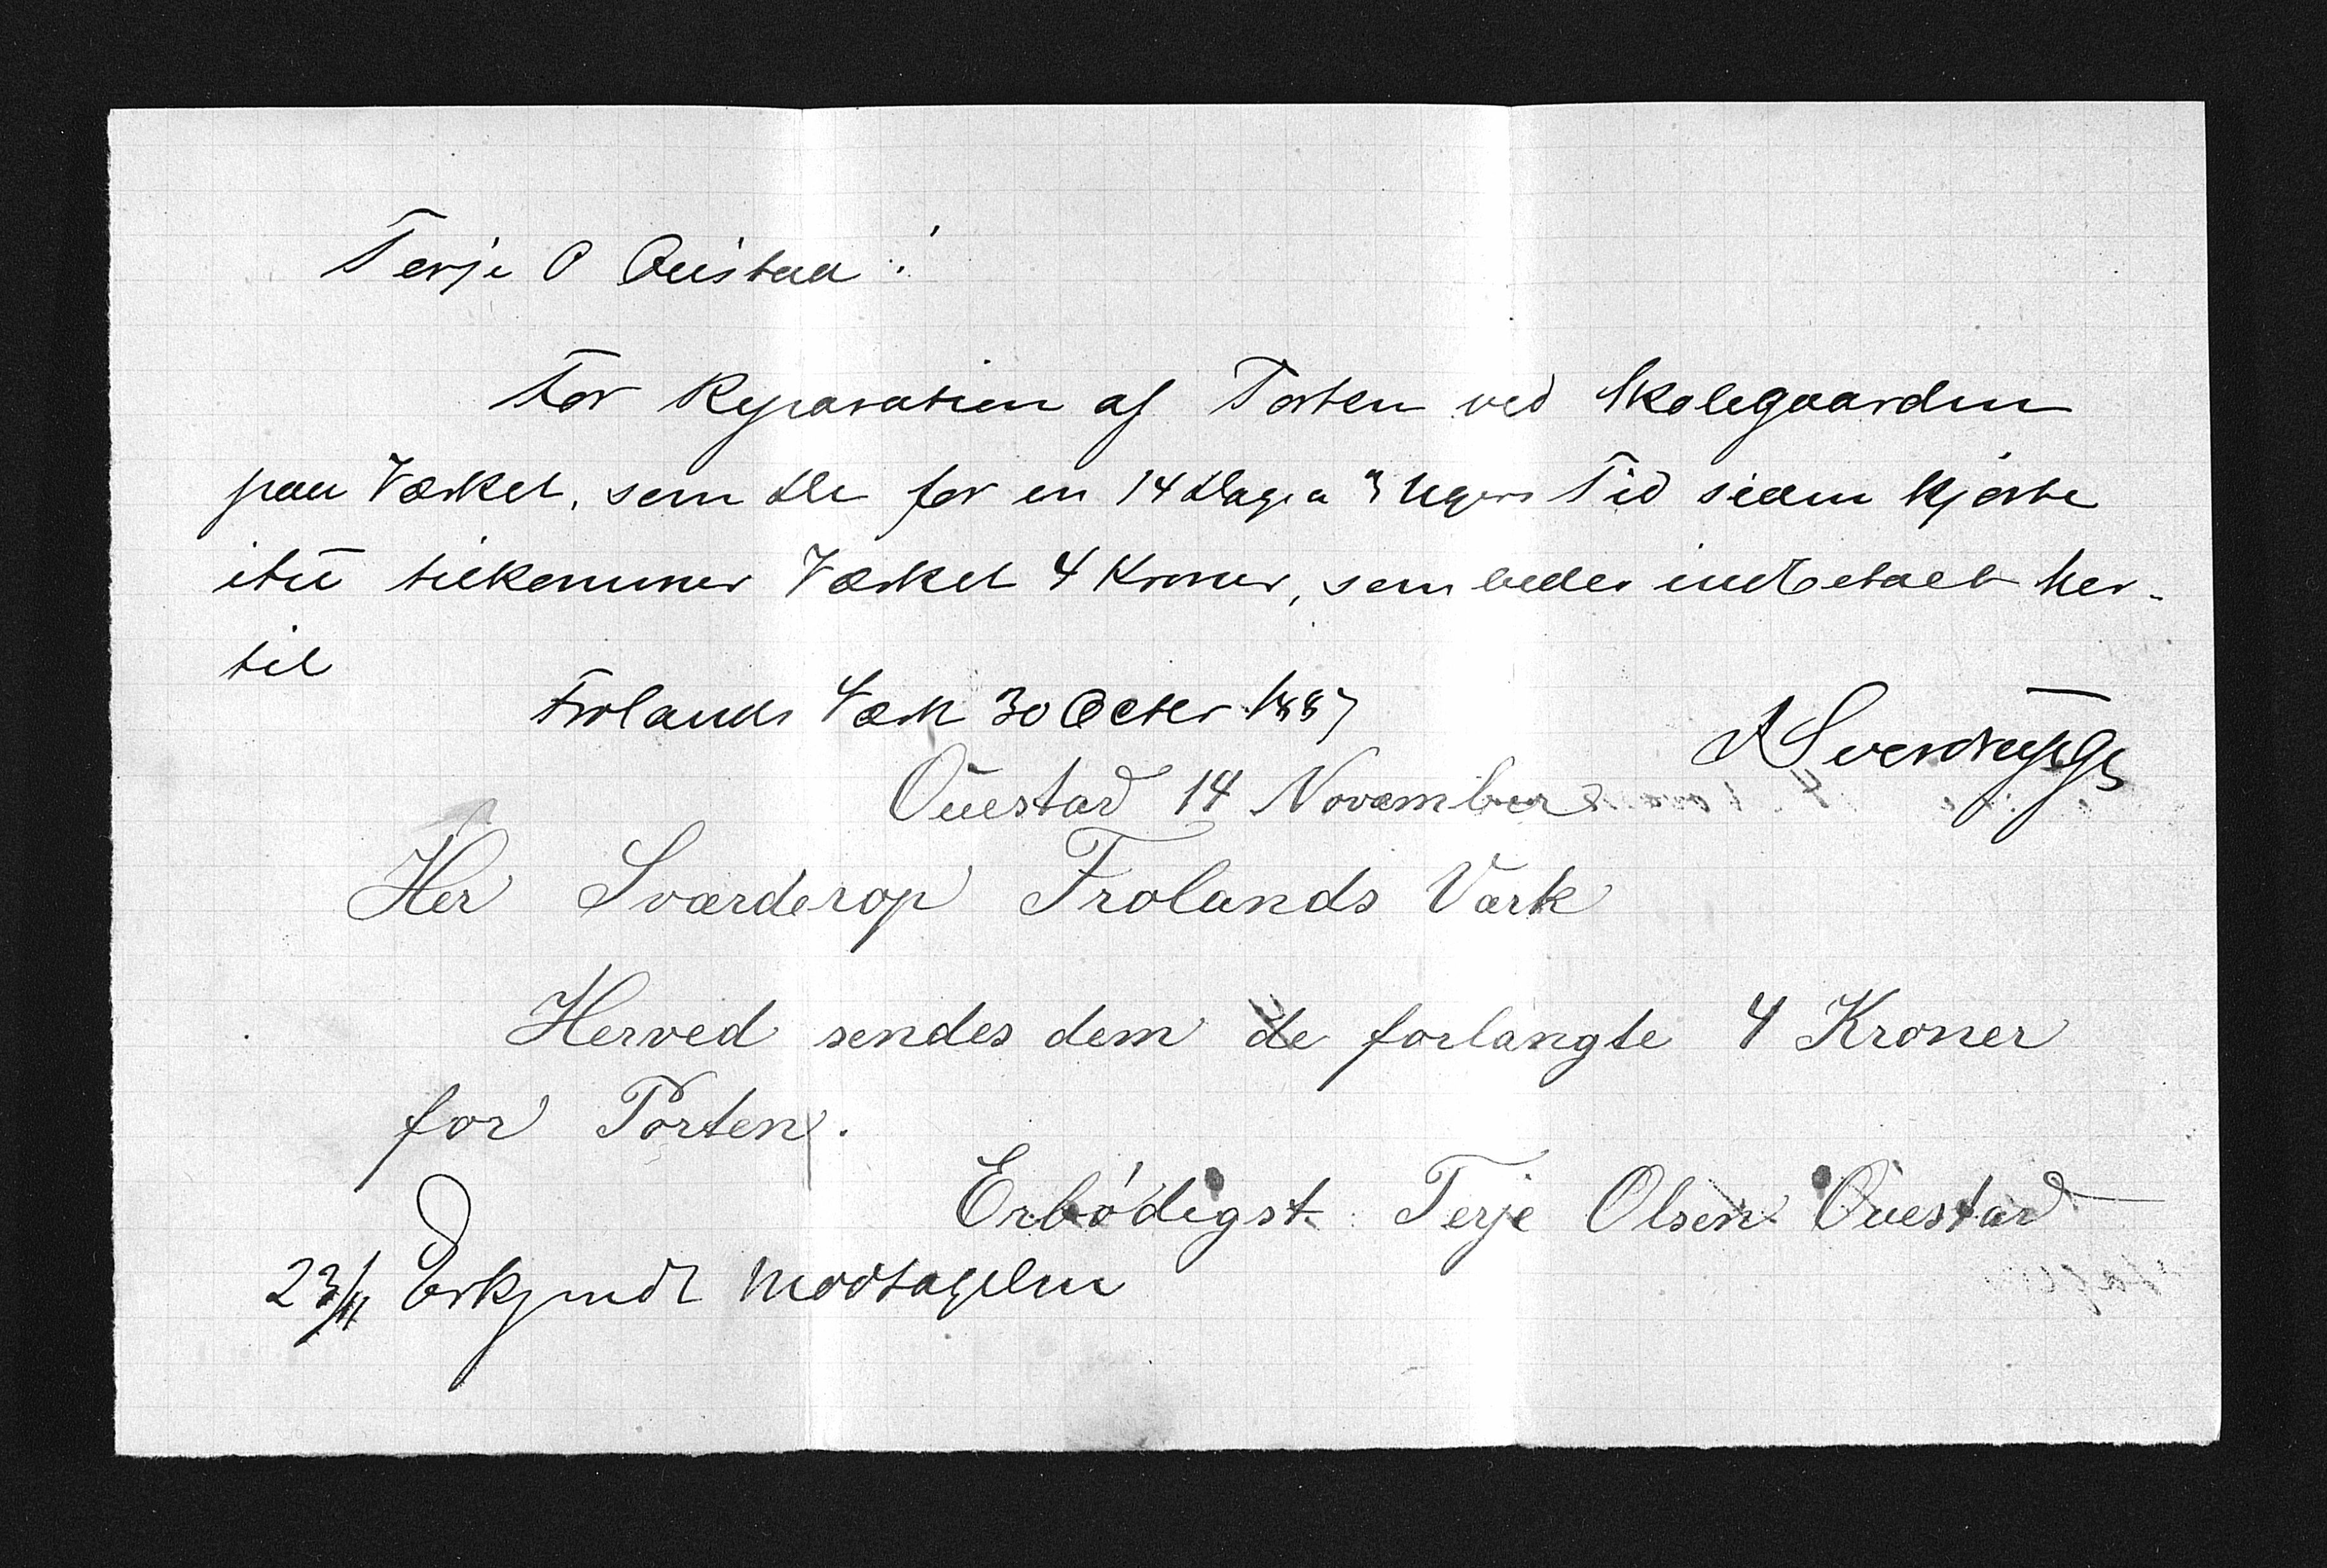 Terje O Ouestad!
For Reparation af Porten ved Skolegaarden
paa Værket, som De for en 14 Dage a 3 Ugers Tid siden kjørte
itu tilkommer Værket 4 Kroner, som bedes indbetalt her-
til
Frolands Værk 30 Octbr 1887
Sverdrup
Ouestad 14 November
Her Sværderop Frolands Værk
Herved sendes dem de forlangte 4 Kroner
for Porten.
Erbödigst Terje Olsen Ouestad
23/11 Erkjendt Modtagelsen